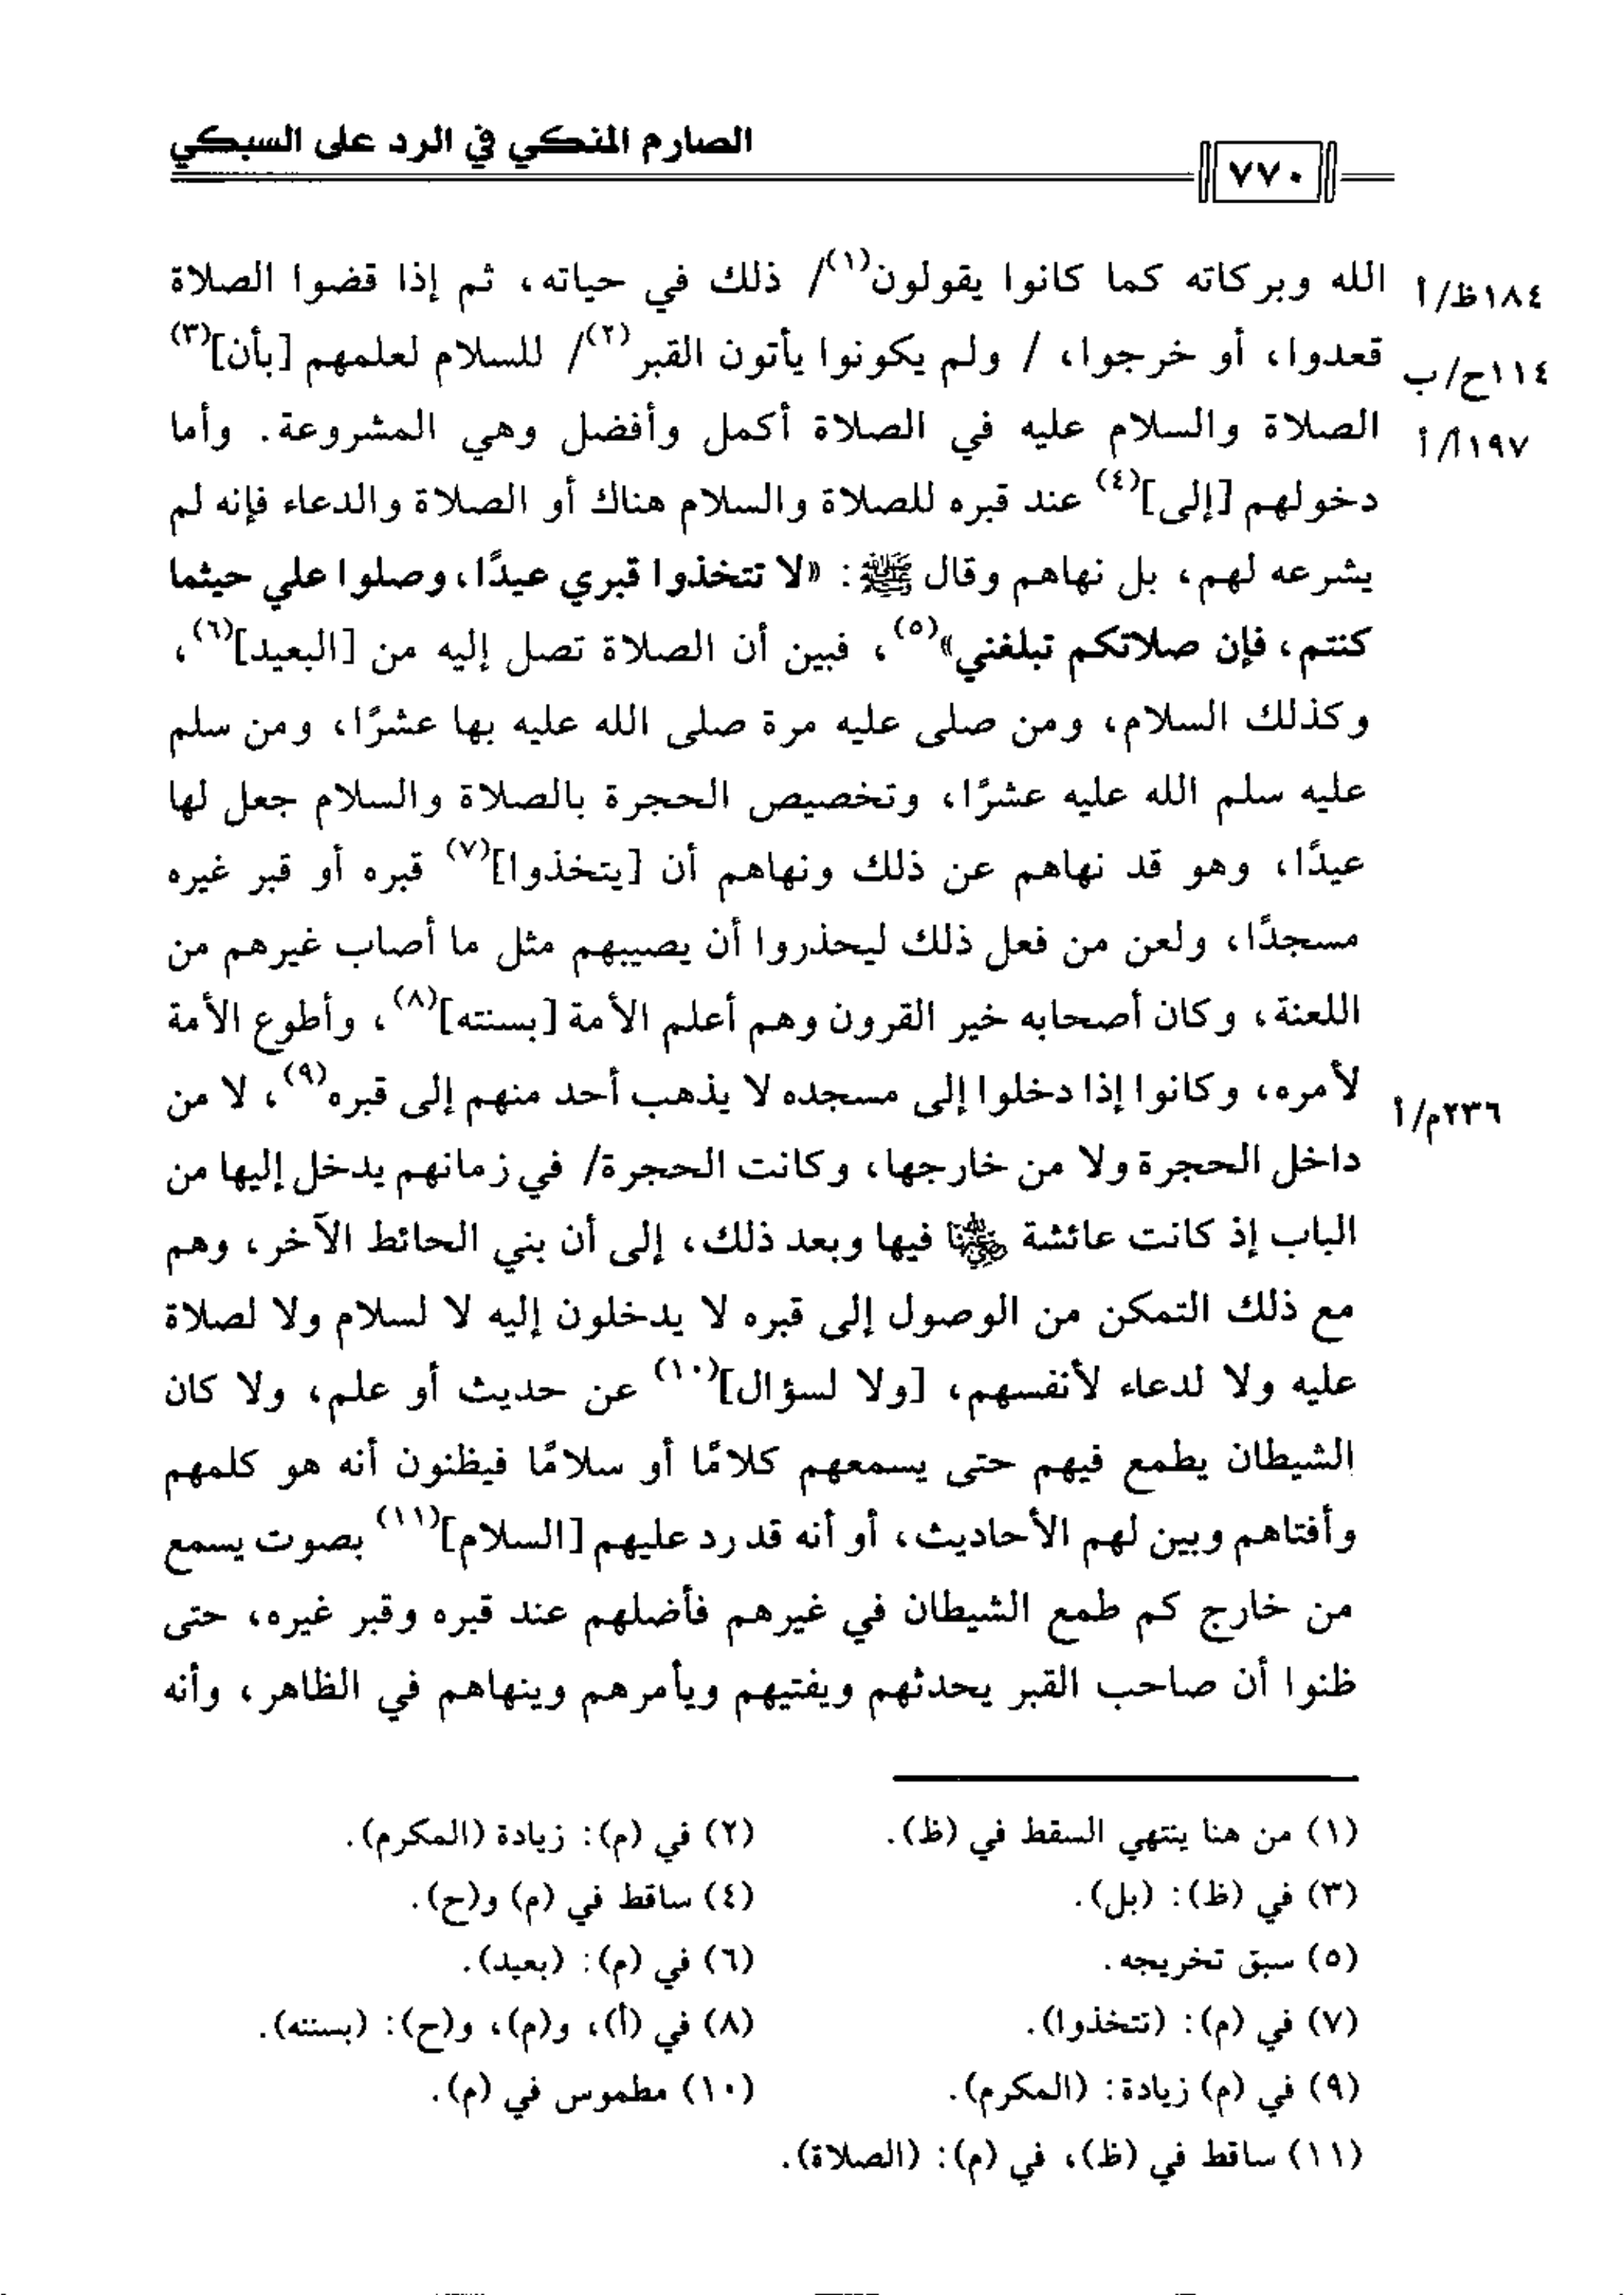 الصارم المنكي في الرد على السبكي
٧٧٠
الله وبركاته كما كانوا يقولون(١)/ ذلك في حياته، ثم إذا قضوا الصلاة
١٨٤ظ/أ
قعدوا، أو خرجوا، / ولم يكونوا يأتون القبر(٢)/ للسلام لعلمهم [بأن](٣)
١١٤ح/ب
الصلاة والسلام عليه في الصلاة أكمل وأفضل وهي المشروعة. وأما
١٩٧أ/أ
دخولهم [إلى](٤) عند قبره للصلاة والسلام هناك أو الصلاة والدعاء فإنه لم
يشرعه لهم، بل نهاهم وقال ﷺ: «لا تتخذوا قبري عيدًا، وصلوا علي حيثما
كنتم، فإن صلاتكم تبلغني»(٥)، فبين أن الصلاة تصل إليه من [البعيد](٦)،
وكذلك السلام، ومن صلى عليه مرة صلى الله عليه بها عشرًا، ومن سلم
عليه سلم الله عليه عشرًا، وتخصيص الحجرة بالصلاة والسلام جعل لها
عيدًا، وهو قد نهاهم عن ذلك ونهاهم أن [يتخذوا](٧) قبره أو قبر غيره
مسجدًا، ولعن من فعل ذلك ليحذروا أن يصيبهم مثل ما أصاب غيرهم من
اللعنة، وكان أصحابه خير القرون وهم أعلم الأمة [بسنته](٨)، وأطوع الأمة
لأمره، وكانوا إذا دخلوا إلى مسجده لا يذهب أحد منهم إلى قبره(٩)، لا من
٢٣٦م/أ
داخل الحجرة ولا من خارجها، وكانت الحجرة/ في زمانهم يدخل إليها من
الباب إذ كانت عائشة رضي الله عنها فيها وبعد ذلك، إلى أن بني الحائط الآخر، وهم
مع ذلك التمكن من الوصول إلى قبره لا يدخلون إليه لا لسلام ولا لصلاة
عليه ولا لدعاء لأنفسهم، [ولا لسؤال](١٠) عن حديث أو علم، ولا كان
الشيطان يطمع فيهم حتى يسمعهم كلامًا أو سلامًا فيظنون أنه هو كلمهم
وأفتاهم وبين لهم الأحاديث، أو أنه قد رد عليهم [السلام](١١) بصوت يسمع
من خارج كم طمع الشيطان في غيرهم فأضلهم عند قبره وقبر غيره، حتى
ظنوا أن صاحب القبر يحدثهم ويفتيهم ويأمرهم وينهاهم في الظاهر، وأنه
(١) من هنا ينتهي السقط في (ظ).
(٢) في (م): زيادة (المكرم).
(٣) في (ظ): (بل).
(٤) ساقط في (م) و(ح).
(٥) سبق تخريجه.
(٦) في (م): (بعيد).
(٧) في (م): (تتخذوا).
(٨) في (أ)، و(م)، و(ح): (بسنته).
(٩) في (م) زيادة: (المكرم).
(١٠) مطموس في (م).
(١١) ساقط في (ظ)، في (م): (الصلاة).